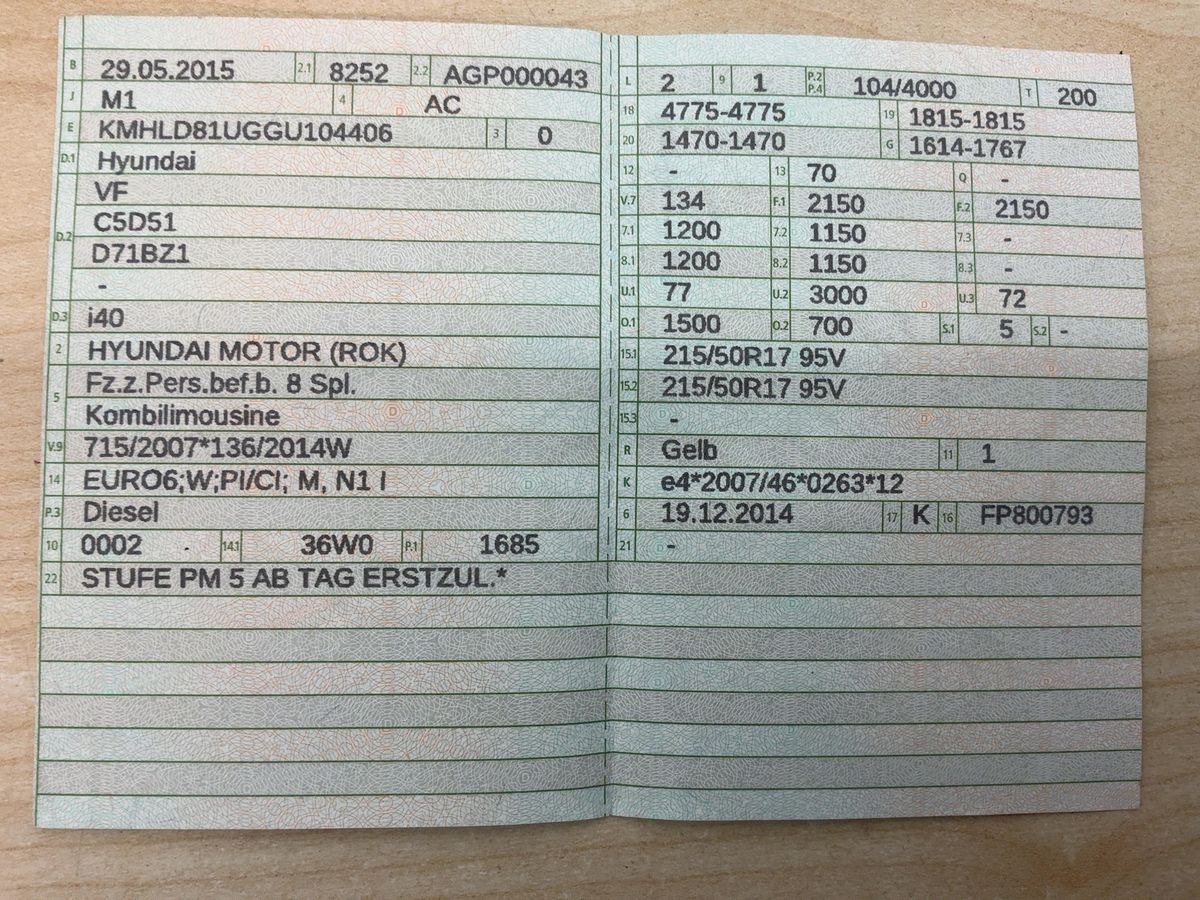 B 29.05.2015 2.1 8252 2.2 AGP000043
J M1 4 AC
E KMHLD81UGGU104406 3 0
D.1 Hyundai
VF
D.2 C5D51
D71BZ1
-
D.3 i40
2 HYUNDAI MOTOR (ROK)
5 Fz.z.Pers.bef.b. 8 Spl.
Kombilimousine
V.9 715/2007*136/2014W
14 EURO6;W;PI/CI; M, N1 I
P.3 Diesel
10 0002 14.1 36W0 P.1 1685
22 STUFE PM 5 AB TAG ERSTZUL.*
L 2 9 1 P.2 P.4 104/4000 T 200
18 4775-4775 19 1815-1815
20 1470-1470 G 1614-1767
12 - 13 70 Q -
V.7 134 F.1 2150 F.2 2150
7.1 1200 7.2 1150 7.3 -
8.1 1200 8.2 1150 8.3 -
U.1 77 U.2 3000 U.3 72
O.1 1500 O.2 700 S.1 5 S.2 -
15.1 215/50R17 95V
15.2 215/50R17 95V
15.3 -
R Gelb 11 1
K e4*2007/46*0263*12
6 19.12.2014 17 K 16 FP800793
21 -